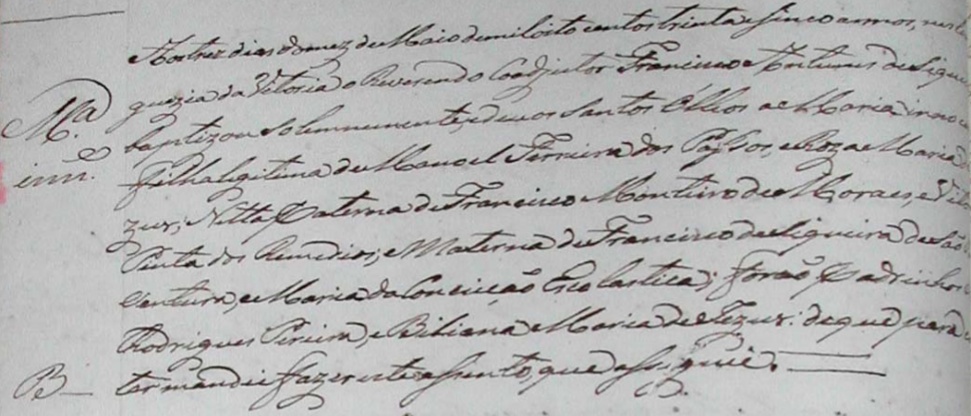 Aos tres dias do mez de Maio de mil oito centos trinta e sinco annos, nesta
guezia da Vitoria o Reverendo Coadjutor Francisco Antunes de Sique
M.ª baptizou solemnemente, e deu os Santos Olhos a Maria inno
inn.e filha legitima de Manoel Ferreira dos Passos, e Roza Maria de
zus; Netta Paterna de Francisco Monteiro de Moraes, e
Pinta dos Remedios, e Materna de Francisco de Siqueira de São
Ventura, e Maria da Conceição Escolastica; forão Padrinhos
Rodrigues Pereira, e Biliana Maria de Jezus: de que para
B termandei fazer este assento, que assignei.